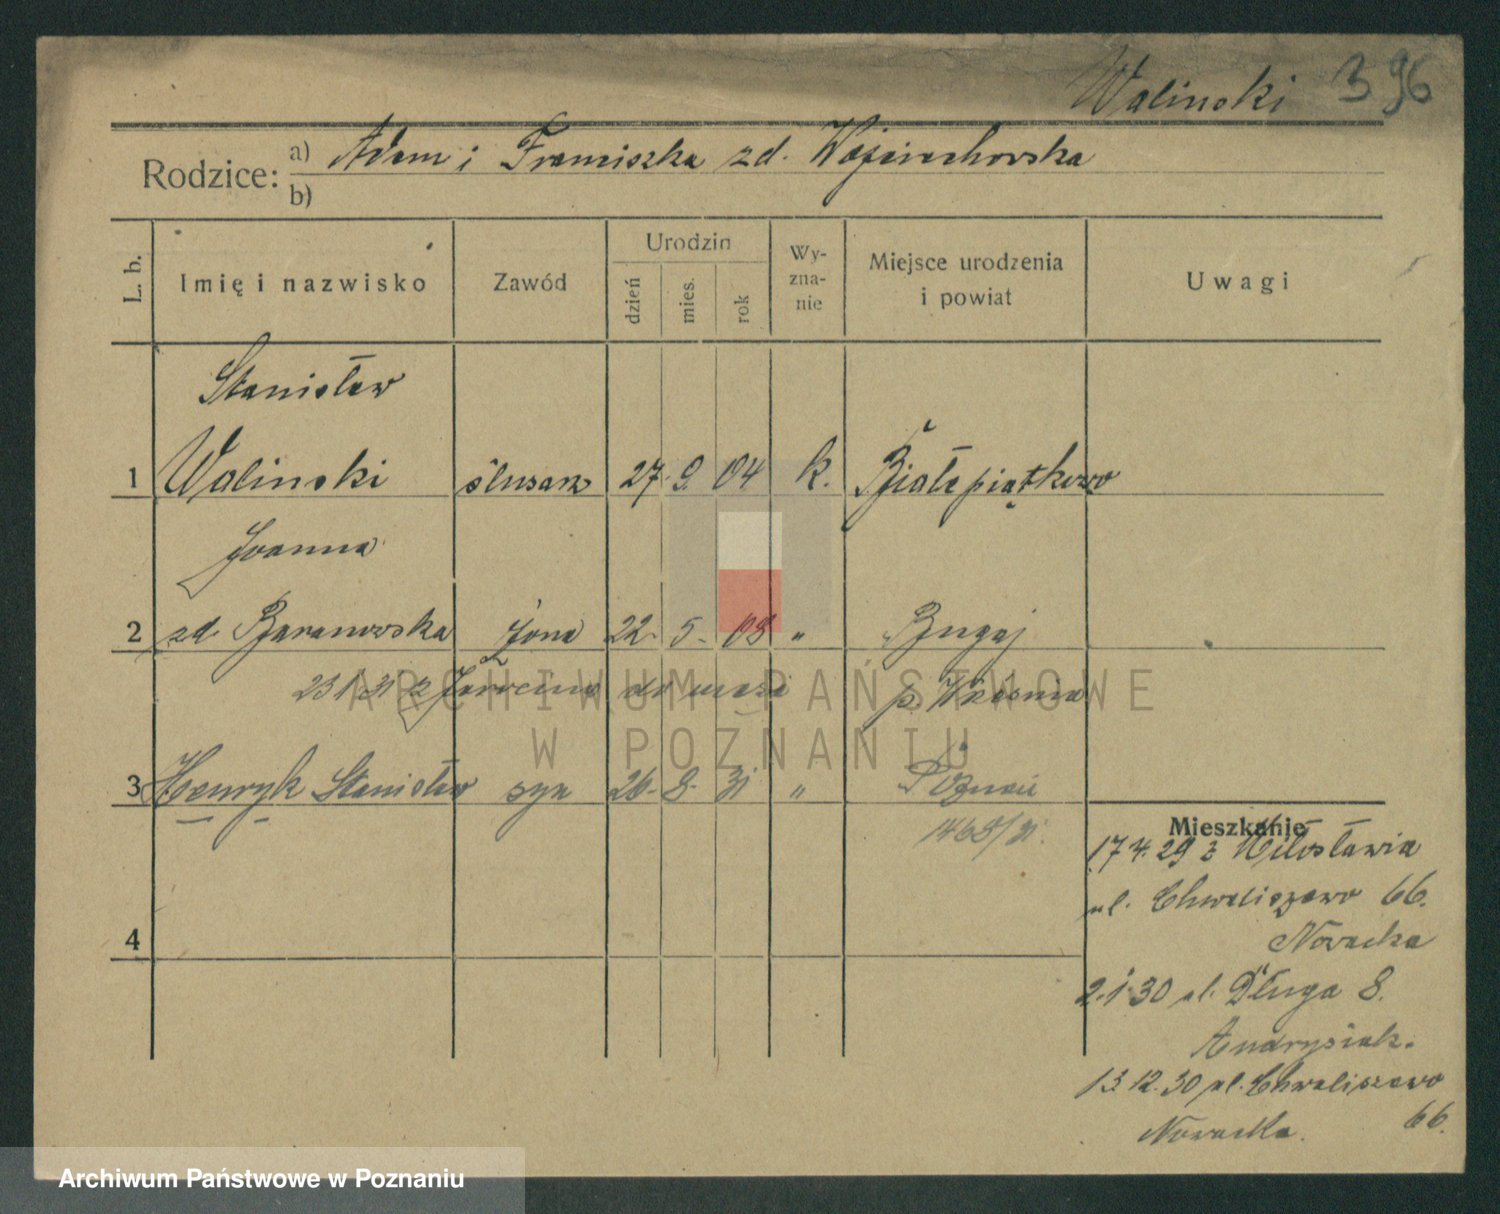 Walinski 396
Rodzice: a) Adam i Franciszka zd. Wojciechowska
b)
L. b. Imię i nazwisko Zawód Urodzin dzień mies. rok Wyznanie Miejsce urodzenia i powiat Uwagi
Stanisław
1 Walinski ślusarz 27. 9. 04 k. Białepiątkowo
Joanna
2 zd. Baranowska żona 22. 5. 08 " Bugaj
23 1 31 z Jarocina do męża p. Września
3 Henryk Stanisław syn 26. 8. 31 " Poznań
1465/31.
4
Mieszkanie
17 4. 29 z Miłosławia
ul. Chwaliszewo 66.
Nowacka
2. 1. 30 ul. Długa 8.
Andrysiak.
13. 12. 30 ul. Chwaliszewo
66.
Nowacka.
ARCHIWUM PAŃSTWOWE
W POZNANIU
Archiwum Państwowe w Poznaniu